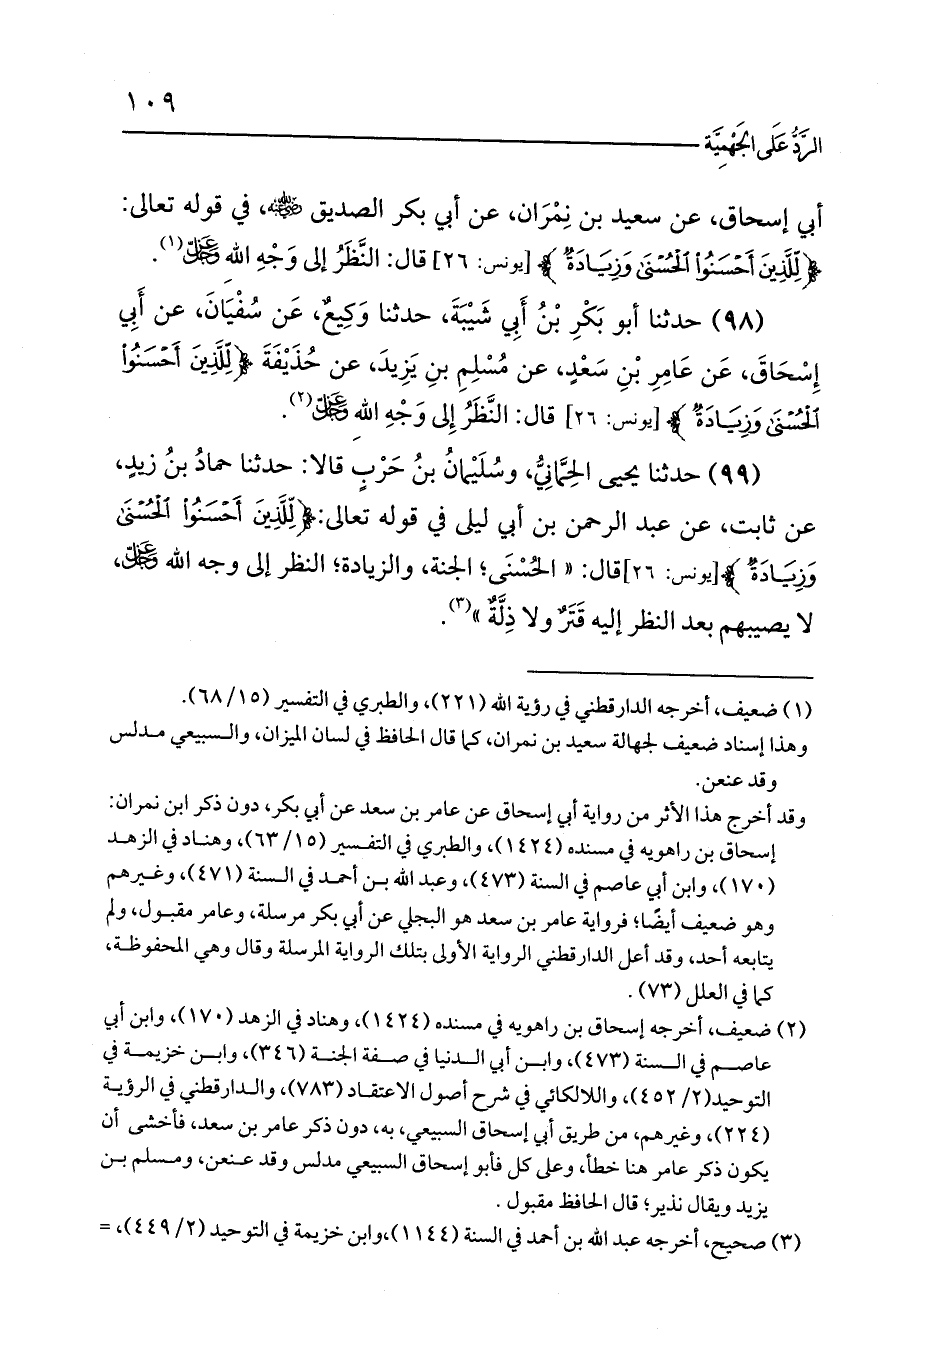 ١٠٩
الرَّدُّ عَلَى الجَهْمِيَّة
أبي إسحاق، عن سعيد بن نِمْرَان، عن أبي بكر الصديق ﵁، في قوله تعالى:
﴿لِّلَّذِينَ أَحْسَنُوا۟ ٱلْحُسْنَىٰ وَزِيَادَةٌ﴾ [يونس: ٢٦] قال: النَّظَرُ إلى وَجْهِ الله ﷿(١).
(٩٨) حدثنا أبو بَكْرِ بْنُ أَبِي شَيْبَةَ، حدثنا وَكِيعٌ، عَن سُفْيَانَ، عن أَبِي
إِسْحَاقَ، عَن عَامِرِ بْنِ سَعْدٍ، عن مُسْلِمِ بنِ يَزِيدَ، عن حُذَيْفَةَ ﴿لِّلَّذِينَ أَحْسَنُوا۟
ٱلْحُسْنَىٰ وَزِيَادَةٌ﴾ [يونس: ٢٦] قال: النَّظَرُ إلى وَجْهِ الله ﷿(٢).
(٩٩) حدثنا يحيى الحِمَّانِيُّ، وسُلَيْمانُ بنُ حَرْبٍ قالا: حدثنا حمادُ بنُ زيدٍ،
عن ثابت، عن عبد الرحمن بن أبي ليلى في قوله تعالى:﴿لِّلَّذِينَ أَحْسَنُوا۟ ٱلْحُسْنَىٰ
وَزِيَادَةٌ﴾[يونس: ٢٦]قال: « الحُسْنَى؛ الجنة، والزيادة؛ النظر إلى وجه الله ﷿،
لا يصيبهم بعد النظر إليه قَتَرٌ ولا ذِلَّةٌ »(٣).
(١) ضعيف، أخرجه الدارقطني في رؤية الله (٢٢١)، والطبري في التفسير (١٥/ ٦٨).
وهذا إسناد ضعيف لجهالة سعيد بن نمران، كما قال الحافظ في لسان الميزان، والسبيعي مدلس
وقد عنعن.
وقد أخرج هذا الأثر من رواية أبي إسحاق عن عامر بن سعد عن أبي بكر، دون ذكر ابن نمران:
إسحاق بن راهويه في مسنده (١٤٢٤)، والطبري في التفسير (١٥/ ٦٣)، وهناد في الزهد
(١٧٠)، وابن أبي عاصم في السنة (٤٧٣)، وعبد الله بن أحمد في السنة (٤٧١)، وغيرهم
وهو ضعيف أيضًا؛ فرواية عامر بن سعد هو البجلي عن أبي بكر مرسلة، وعامر مقبول، ولم
يتابعه أحد، وقد أعل الدارقطني الرواية الأولى بتلك الرواية المرسلة وقال وهي المحفوظة،
كما في العلل (٧٣) .
(٢) ضعيف، أخرجه إسحاق بن راهويه في مسنده (١٤٢٤)، وهناد في الزهد (١٧٠)، وابن أبي
عاصم في السنة (٤٧٣)، وابن أبي الدنيا في صفة الجنة (٣٤٦)، وابن خزيمة في
التوحيد(٢/ ٤٥٢)، واللالكائي في شرح أصول الاعتقاد (٧٨٣)، والدارقطني في الرؤية
(٢٢٤)، وغيرهم، من طريق أبي إسحاق السبيعي، به، دون ذكر عامر بن سعد، فأخشى أن
يكون ذكر عامر هنا خطأ، وعلى كل فأبو إسحاق السبيعي مدلس وقد عنعن، ومسلم بن
يزيد ويقال نذير؛ قال الحافظ مقبول .
(٣) صحيح، أخرجه عبد الله بن أحمد في السنة (١١٤٤)،وابن خزيمة في التوحيد (٢/ ٤٤٩)، =